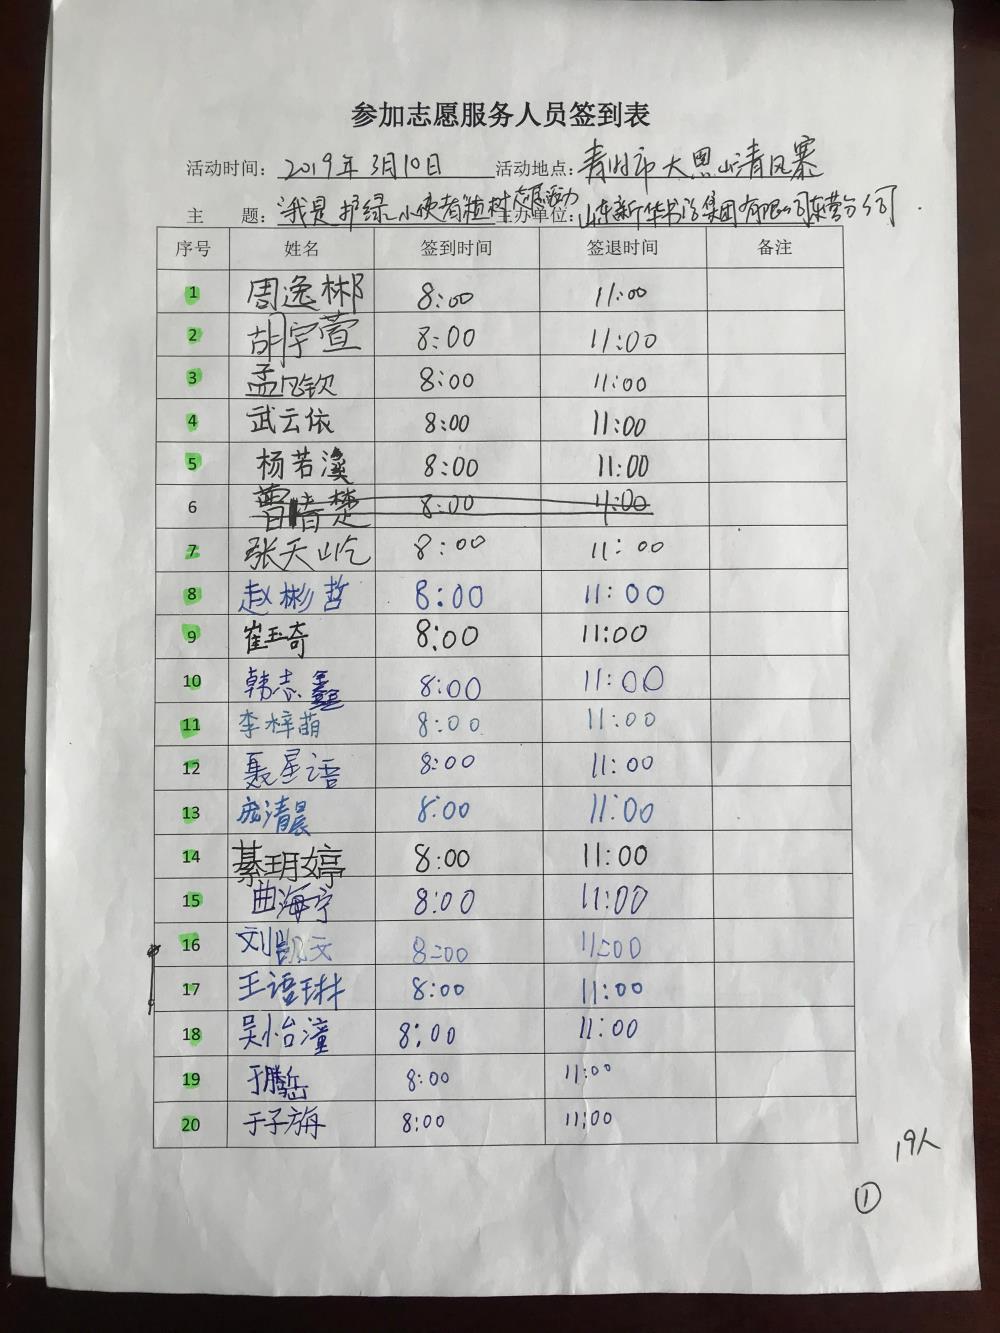 参加志愿服务人员签到表
活动时间: 2019年3月10日 活动地点: 青州市大思山清风寨
主 题: "我是护绿小使者植树志愿活动 主办单位: 山东新华书店集团有限公司东营分公司
序号 姓名 签到时间 签退时间 备注
1 周逸彬 8:00 11:00
2 胡宇萱 8:00 11:00
3 孟凡钦 8:00 11:00
4 武云依 8:00 11:00
5 杨若溪 8:00 11:00
6 曹楚 8:00 11:00
7 张天屹 8:00 11:00
8 赵彬哲 8:00 11:00
9 崔玉奇 8:00 11:00
10 韩志鑫 8:00 11:00
11 李梓萌 8:00 11:00
12 聂星语 8:00 11:00
13 庞清晨 8:00 11:00
14 綦玥婷 8:00 11:00
15 曲海宁 8:00 11:00
16 刘凯文 8:00 11:00
17 王语琳 8:00 11:00
18 吴怡潼 8:00 11:00
19 于腾岳 8:00 11:00
20 于子旃 8:00 11:00
19人
①